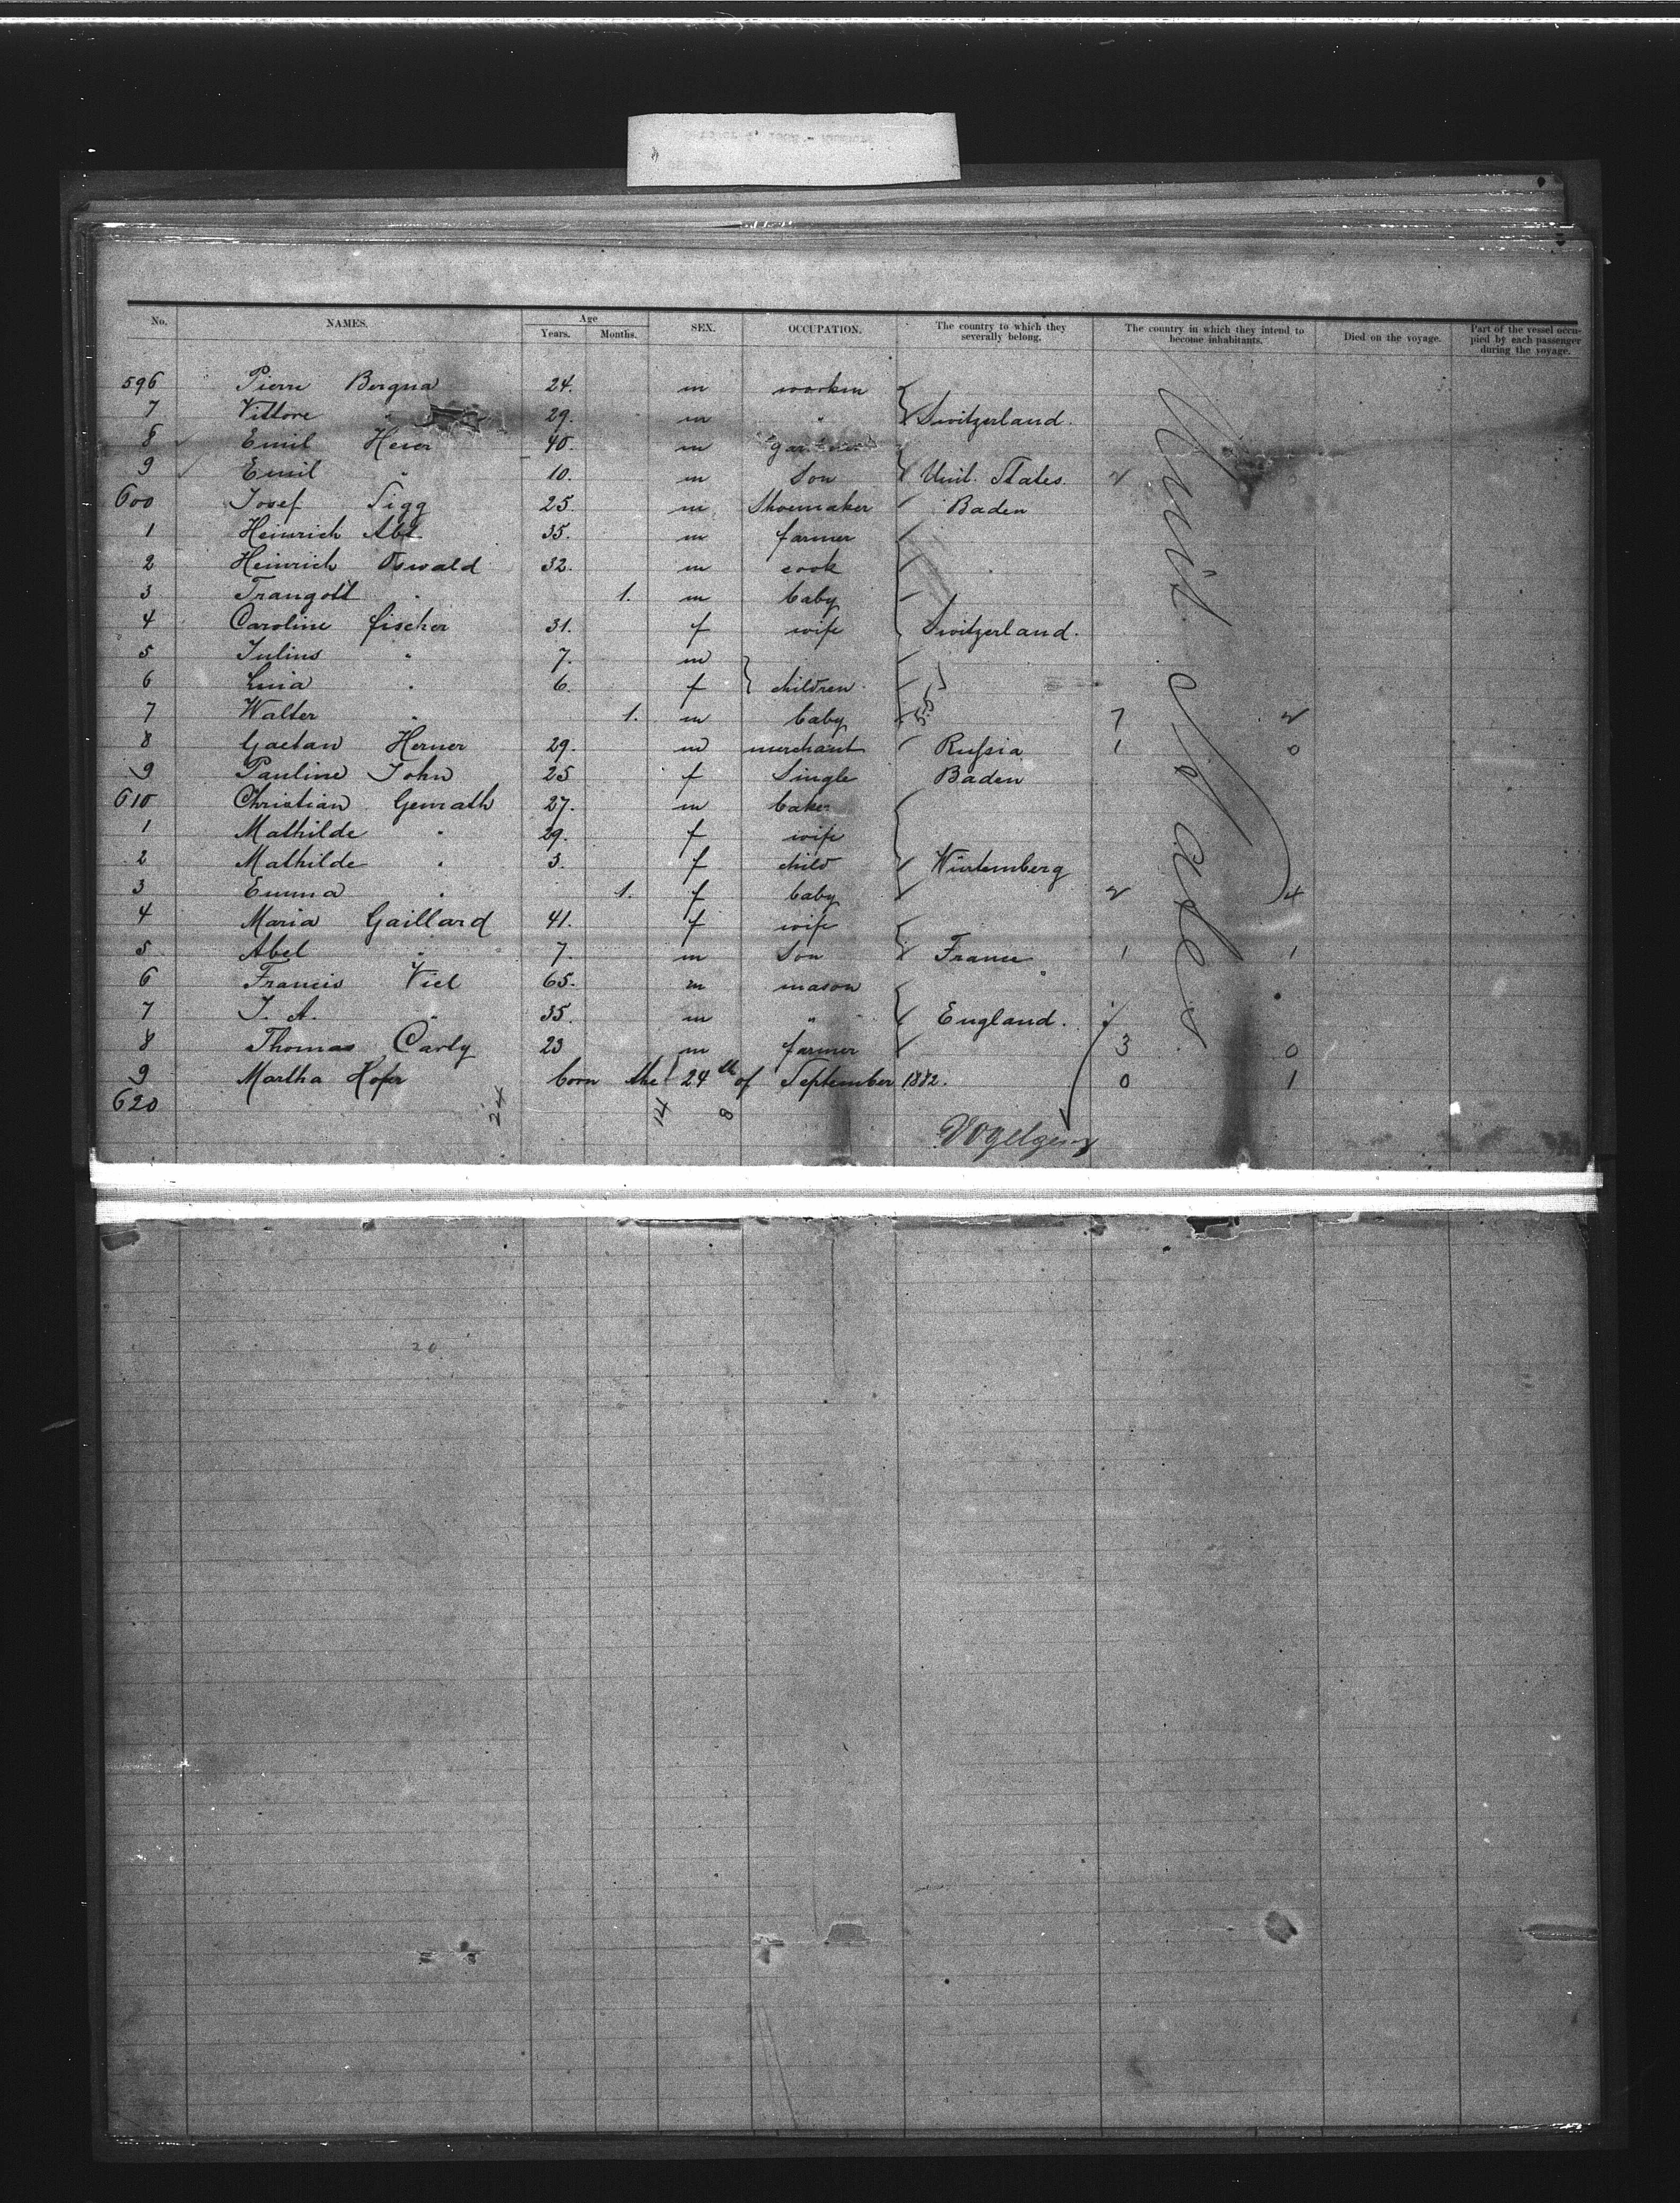 No. NAMES. Age Years. Months. SEX. OCCUPATION. The country to which they severally belong. The country in which they intend to become inhabitants. Died on the voyage. Part of the vessel occupied by each passenger during the voyage.
596 Pierre Bergna 24. m workm
7 Vittore " 29. m " Switzerland.
8 Emil Heuer 40. m gardener
9 Emil " 10. m Son Unit. States. 2
600 Josef Sigg 25. m Shoemaker Baden
1 Heinrich Abt 35. m farmer
2 Heinrich Oswald 32. m cook
3 Traugott " 1. m baby
4 Caroline fischer 31. f wife Switzerland.
5 Julius " 7. m
6 " 6. f children
7 Walter " 1. m baby 7 2
8 Gaetan Herner 29. m merchant Russia 1 0
9 Pauline John 25 f Single Baden
610 Christian Genrath 27. m baker
1 Mathilde " 29. f wife
2 Mathilde " 3. f child Würtemberg
3 Emma " 1. f baby 2 4
4 Maria Gaillard 41. f wife
5 Abel " 7. m Son France 1 1
6 Francis Viel 65. m mason
7 J. A. " 35. m " England.
8 Thomas Carly 23 m farmer 3 0
9 Martha Hofer born the 24th of September 1882. 0 1
620
24 14 8
Unit. States
20